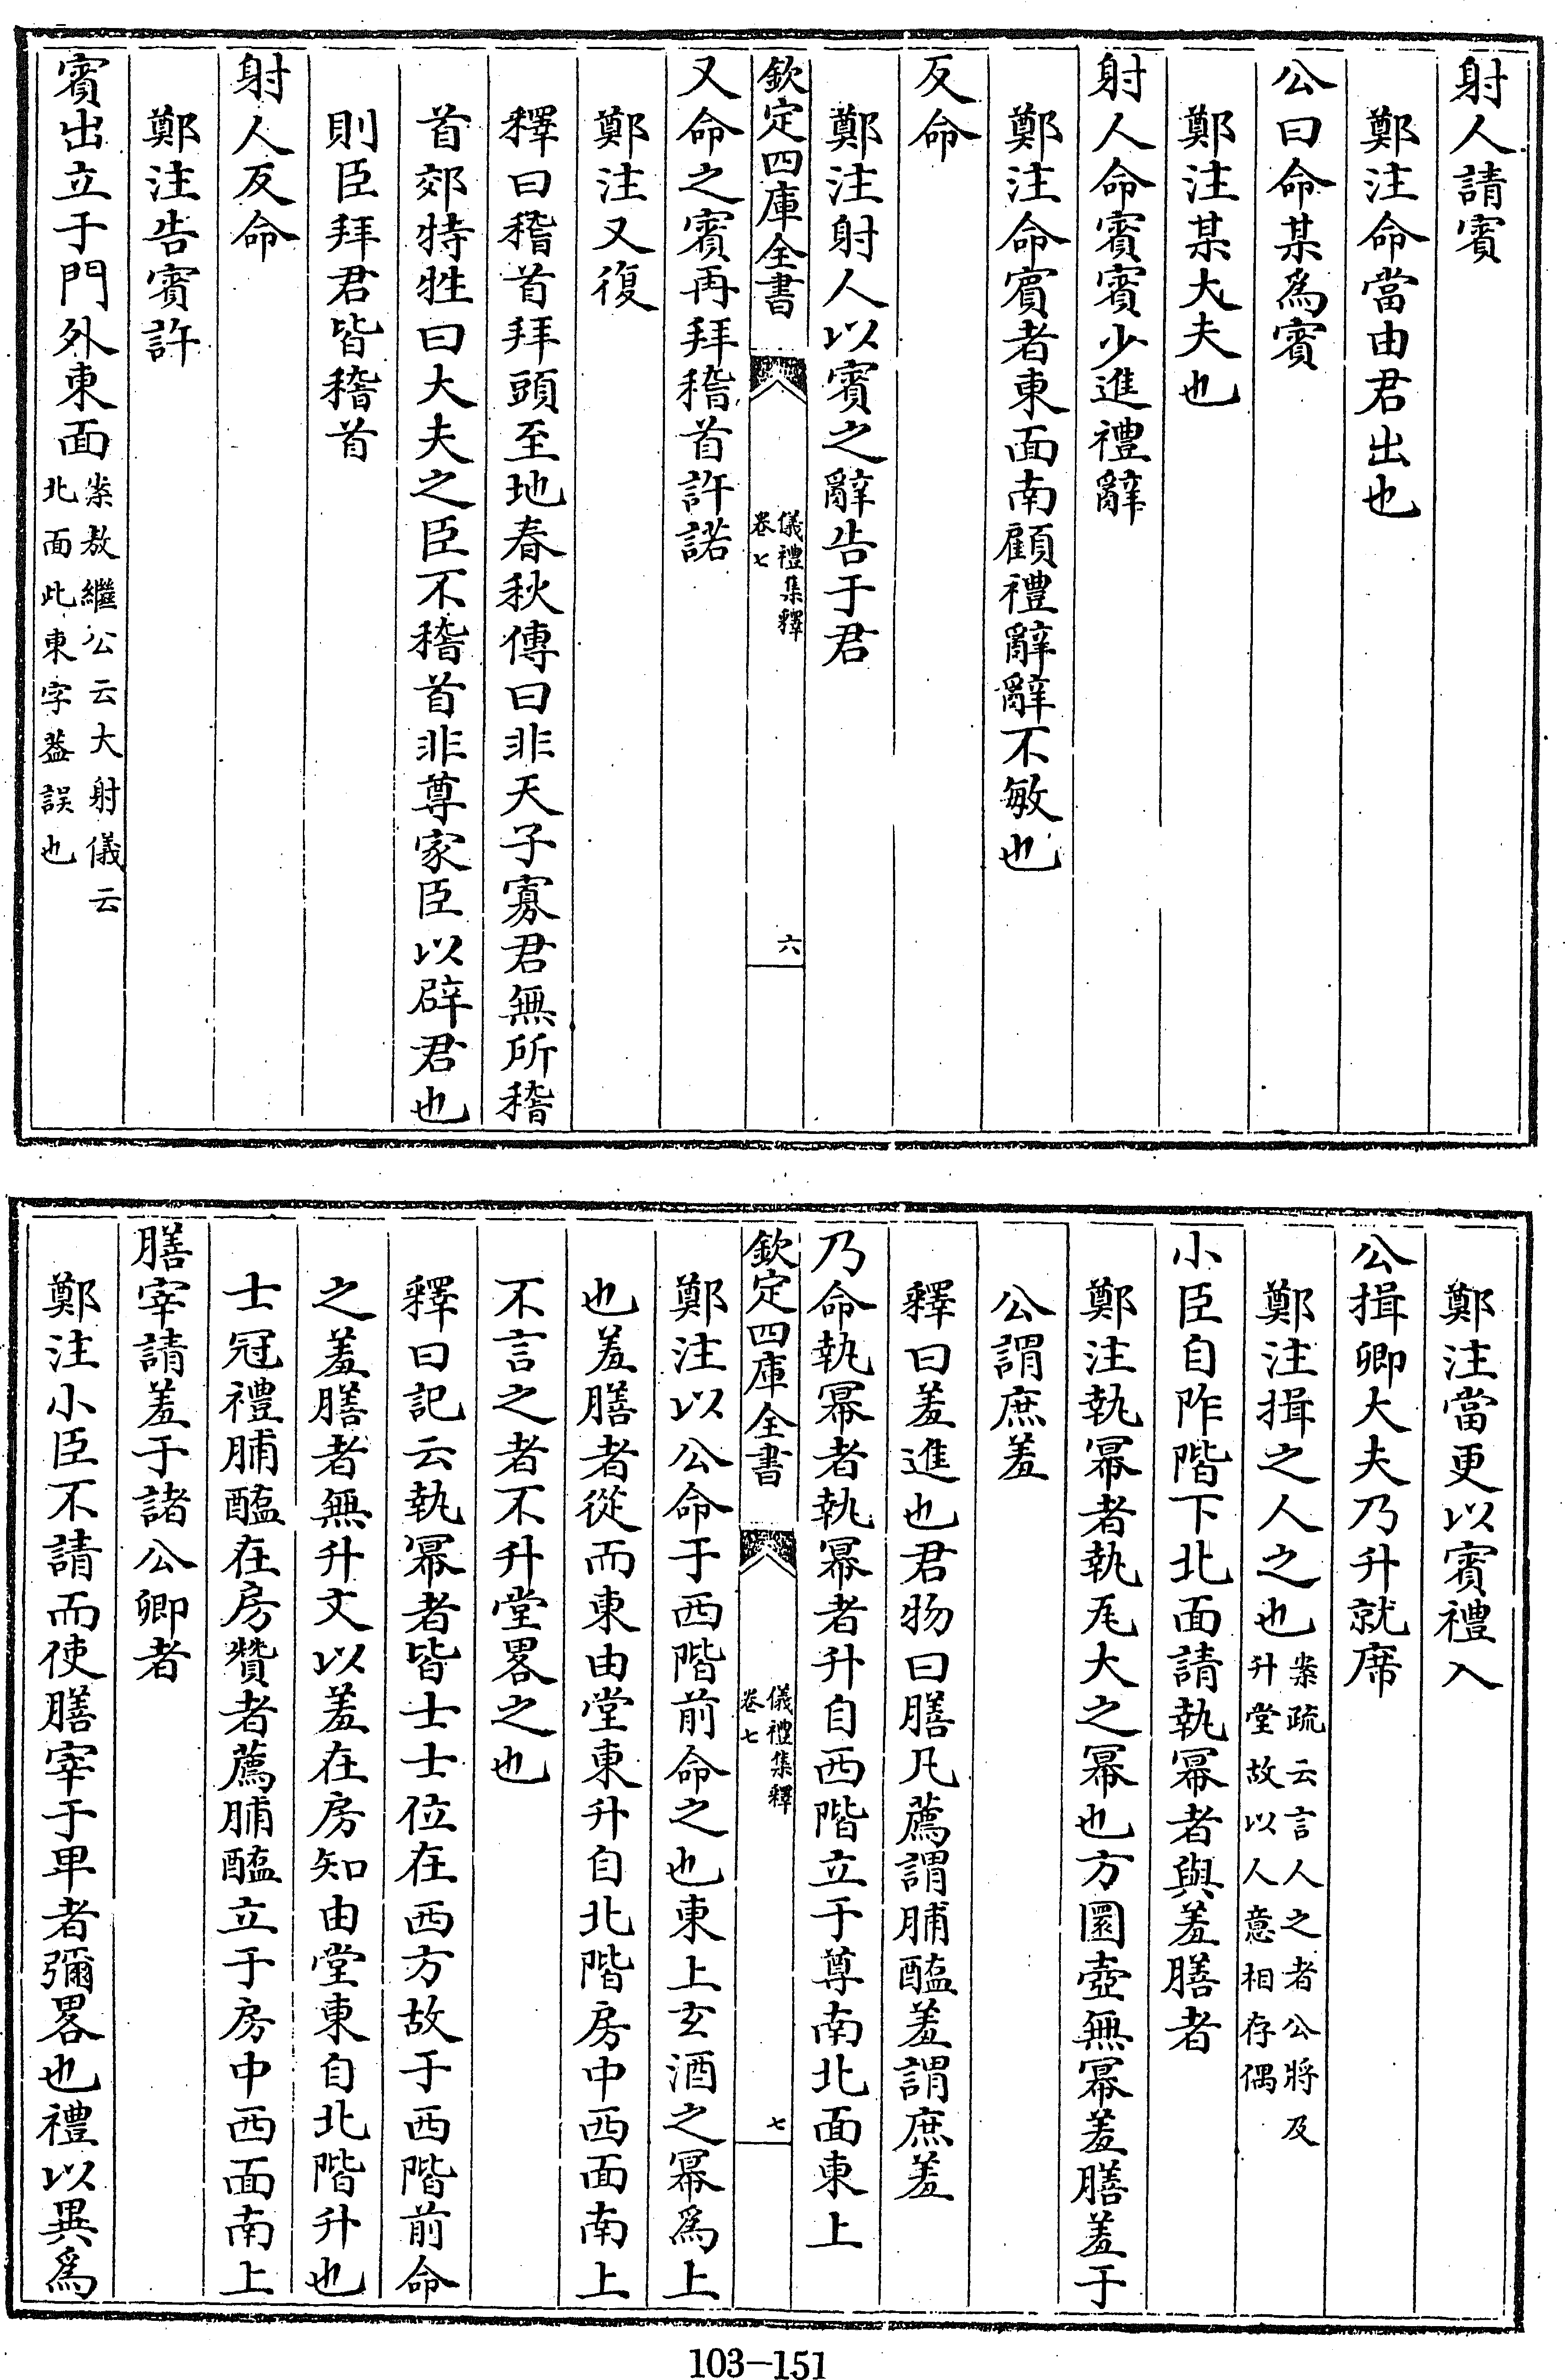 射人請賓
鄭注命當由君出也
公曰命某爲賓
鄭注某大夫也
射人命賓賓少進禮辭
鄭注命賓者東面南顧禮辭辭不敏也
反命
鄭注射人以賓之辭告于君
欽定四庫全書
儀禮集釋
卷七
六
又命之賓再拜稽首許諾
鄭注又復
釋曰稽首拜頭至地春秋傳曰非天子寡君無所稽
首郊特牲曰大夫之臣不稽首非尊家臣以辟君也
則臣拜君皆稽首
射人反命
鄭注告賓許
賓出立于門外東面
案敖繼公云大射儀云
北面此東字葢誤也
鄭注當更以賓禮入
公揖卿大夫乃升就席
鄭注揖之人之也
案疏云言人之者公將及
升堂故以人意相存偶
小臣自阼階下北面請執冪者與羞膳者
鄭注執冪者執瓦大之冪也方圜壺無冪羞膳羞于
公謂庶羞
釋曰羞進也君物曰膳凡薦謂脯醢羞謂庶羞
乃命執冪者執冪者升自西階立于尊南北面東上
欽定四庫全書
儀禮集釋
卷七
七
鄭注以公命于西階前命之也東上玄酒之冪爲上
也羞膳者從而東由堂東升自北階房中西面南上
不言之者不升堂畧之也
釋曰記云執冪者皆士士位在西方故于西階前命
之羞膳者無升文以羞在房知由堂東自北階升也
士冠禮脯醢在房贊者薦脯醢立于房中西面南上
膳宰請羞于諸公卿者
鄭注小臣不請而使膳宰于卑者彌畧也禮以異爲
103-151